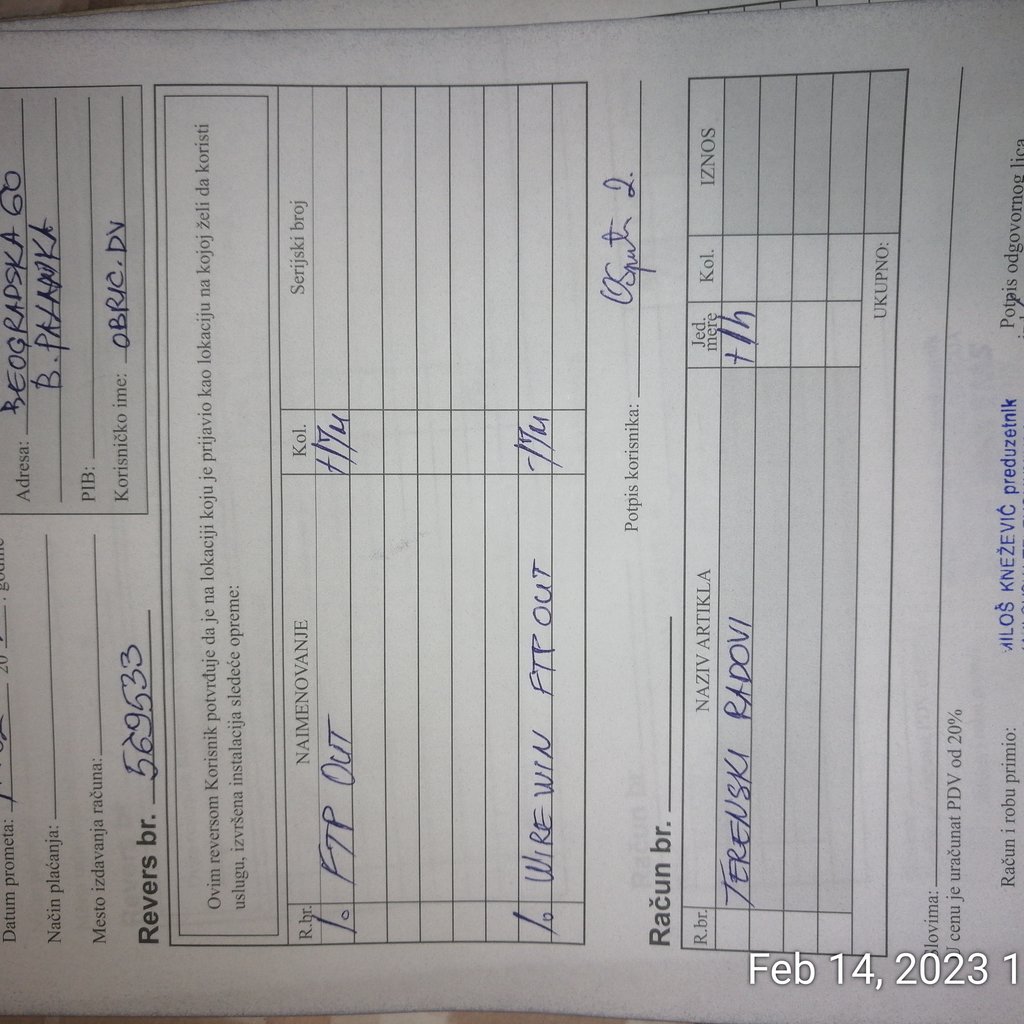 Adresa: BEOGRADSKA 60
B. PALANKA
PIB:
Korisničko ime: OBRIC.DV
Datum prometa:
Način plaćanja:
Mesto izdavanja računa:
Revers br. 569533
Ovim reversom Korisnik potvrđuje da je na lokaciji koju je prijavio kao lokaciju na kojoj želi da koristi
uslugu, izvršena instalacija sledeće opreme:
R.br. NAIMENOVANJE Kol. Serijski broj
1. FTP OUT
1. WIREWIN FTP OUT
Potpis korisnika:
Račun br.
R.br. NAZIV ARTIKLA Jed. mere Kol. IZNOS
TERENSKI RADOVI
UKUPNO:
Slovima:
U cenu je uračunat PDV od 20%
Račun i robu primio: Potpis odgovornog lica
MILOŠ KNEŽEVIĆ preduzetnik
Feb 14, 2023 1